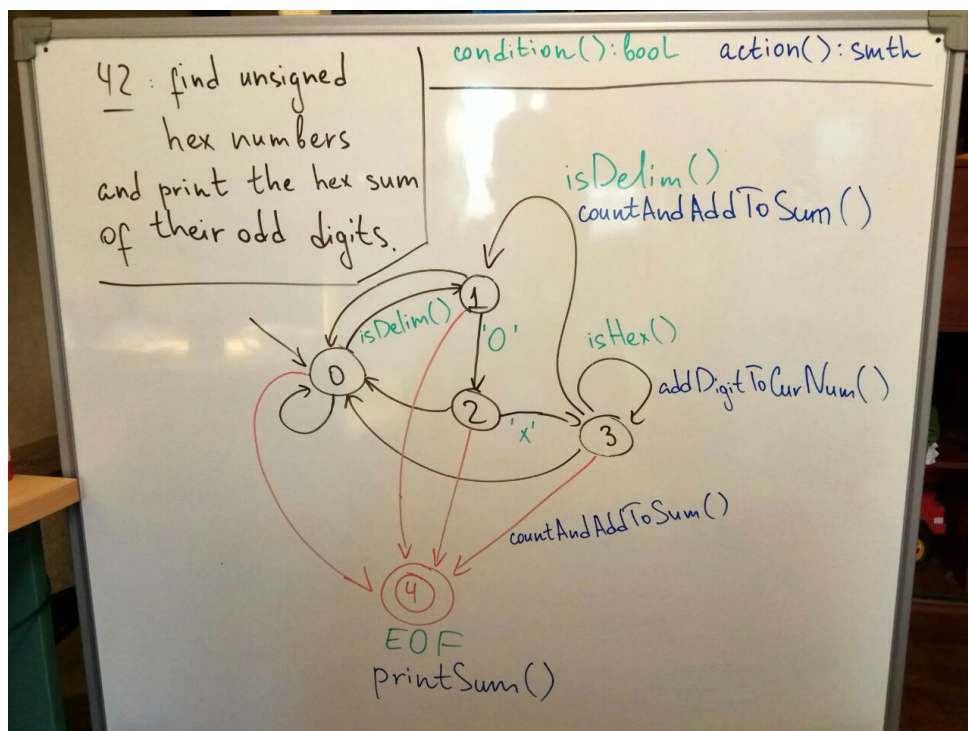 42 : find unsigned
hex numbers
and print the hex sum
of their odd digits.
condition():bool action():smth
isDelim()
countAndAddToSum()
1
isDelim()
'0'
isHex()
0
addDigitToCurNum()
2
'x'
3
countAndAddToSum()
4
EOF
printSum()